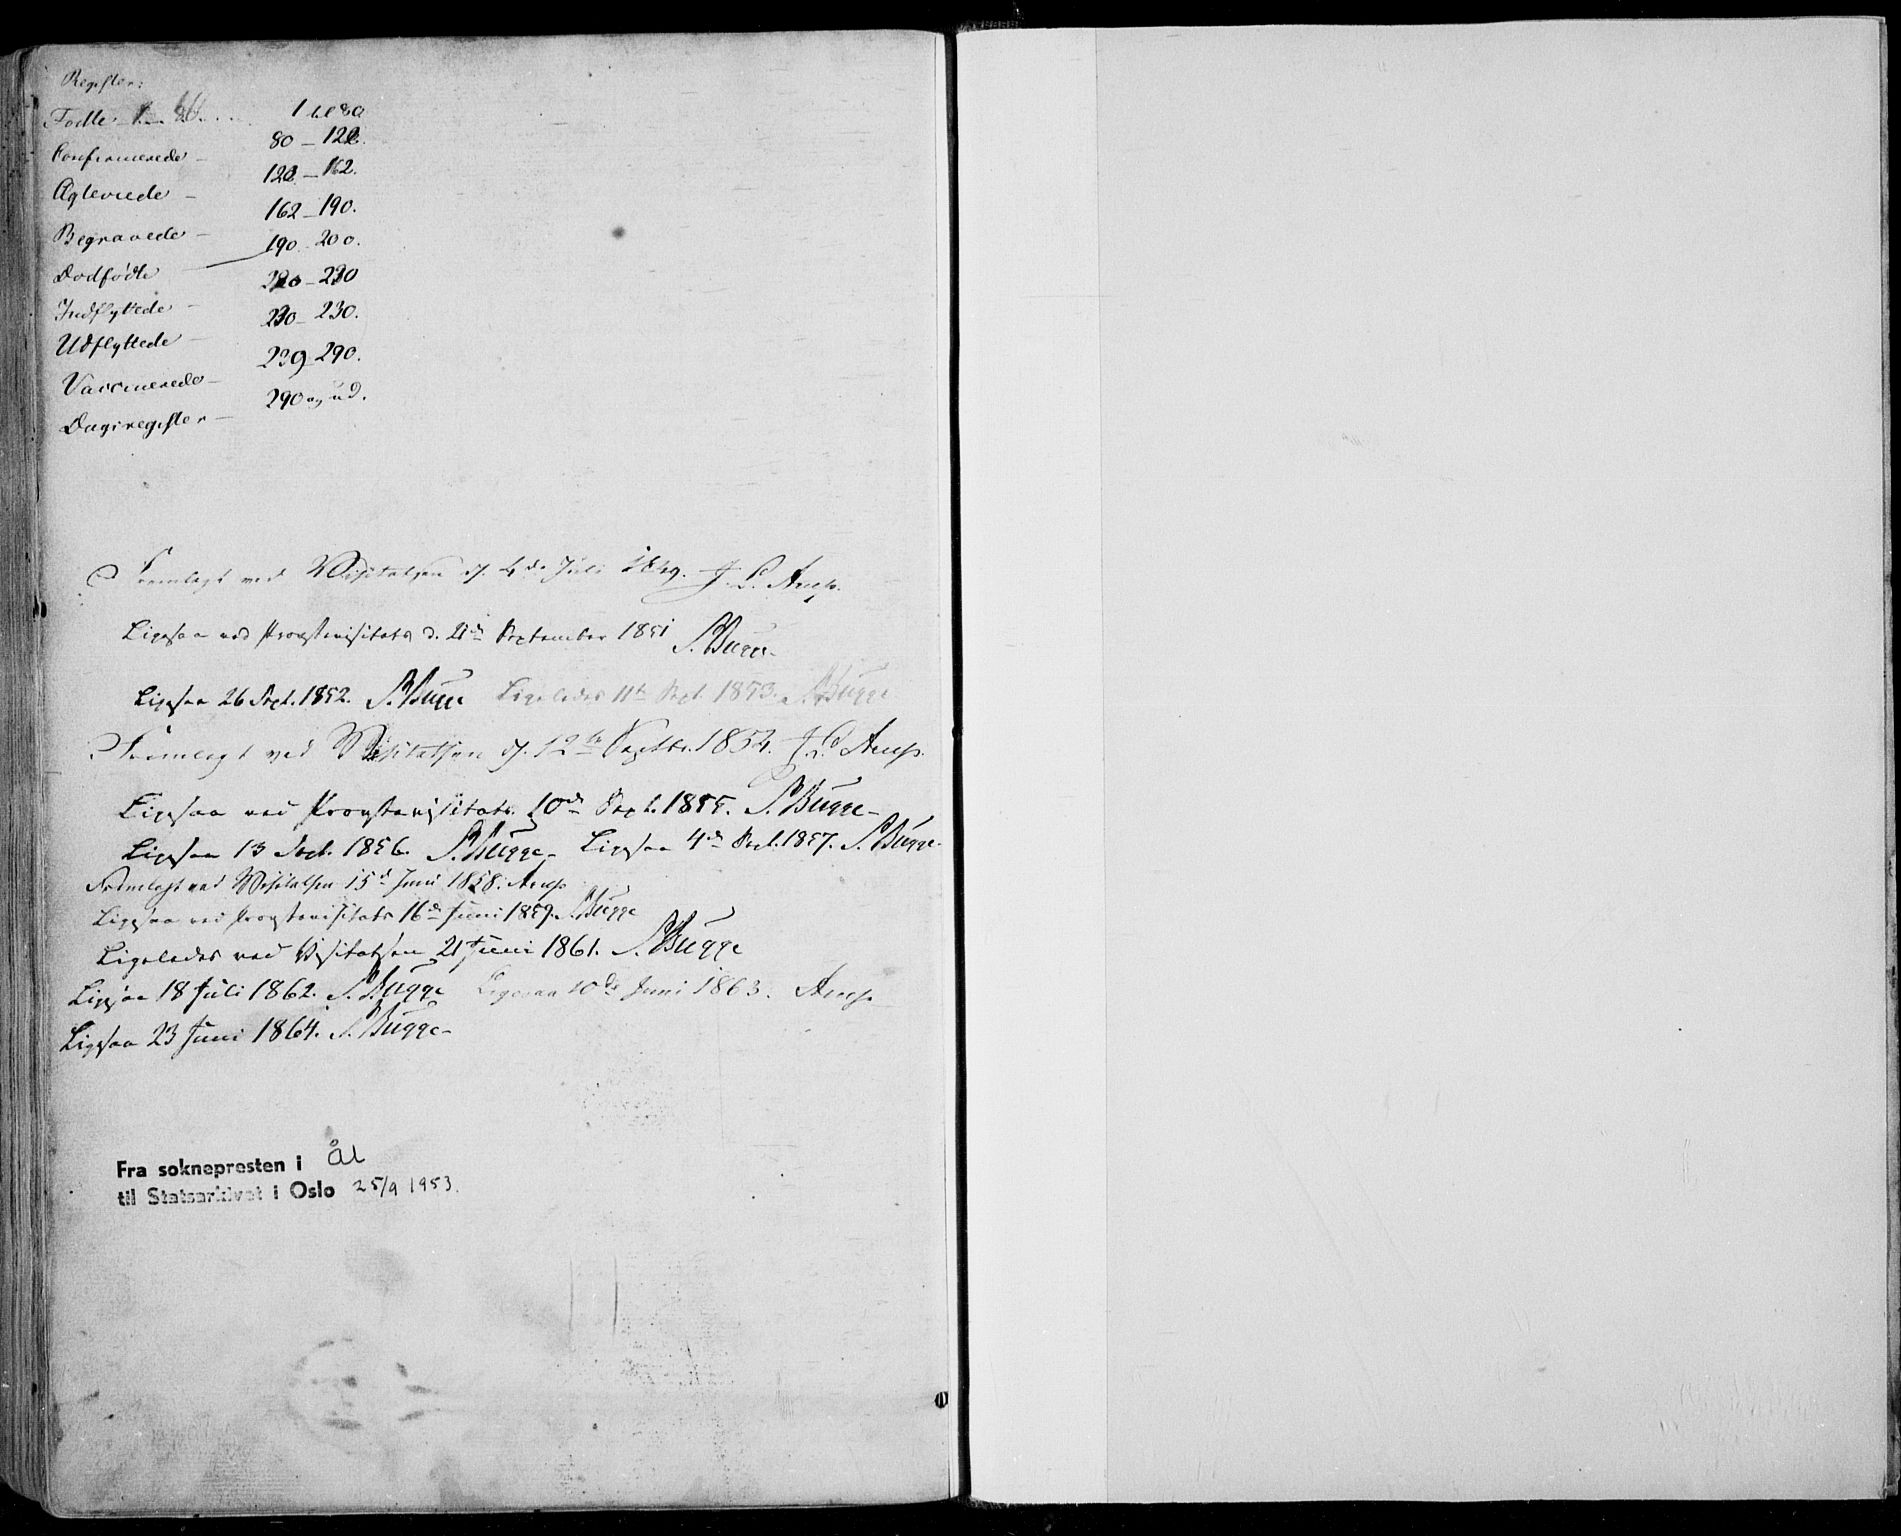 Register:
Fødte 1 til 80
Confirmerede – 80 – 122.
Ægteviede – 122 – 162.
Begravede – 162 – 190.
Dødfødte 190 – 200.
Indflyttede – 220 – 230
Udflyttede – 230 – 230.
Vaccinerede – 239 – 290.
Dagsregister – 290 og ud.
Fremlagt ved Visitatsen d. 4de Juli 1849. J. L. Arup.
Ligesaa ved Provstevisitats d. 21de September 1851 S. Bugge.
Ligesaa 26 Sept. 1852. S. Bugge Ligeledes 11te Sept. 1853. S. Bugge
Fremlagt ved Visitatsen d. 12te Septbr. 1854. J. L. Arup.
Ligesaa ved Provstevisitats. 10de Sept. 1855. S. Bugge –
Ligesaa 13 Sept. 1856. S. Bugge – Ligesaa 4de Sept. 1857. S. Bugge.
Fremlagt ved Visitatsen 15de Juni 1858. Arup
Ligesaa ved Provstevisitats 16de Juni 1859. S. Bugge
Ligeledes ved Visitatsen 21 Juni 1861. S. Bugge
Ligesaa 18 Juli 1862. S. Bugge Ligesaa 10de Juni 1863. Arup
Ligesaa 23 Juni 1864. S. Bugge –
Fra soknepresten i Ål
til Statsarkivet i Oslo 25/9 1953.